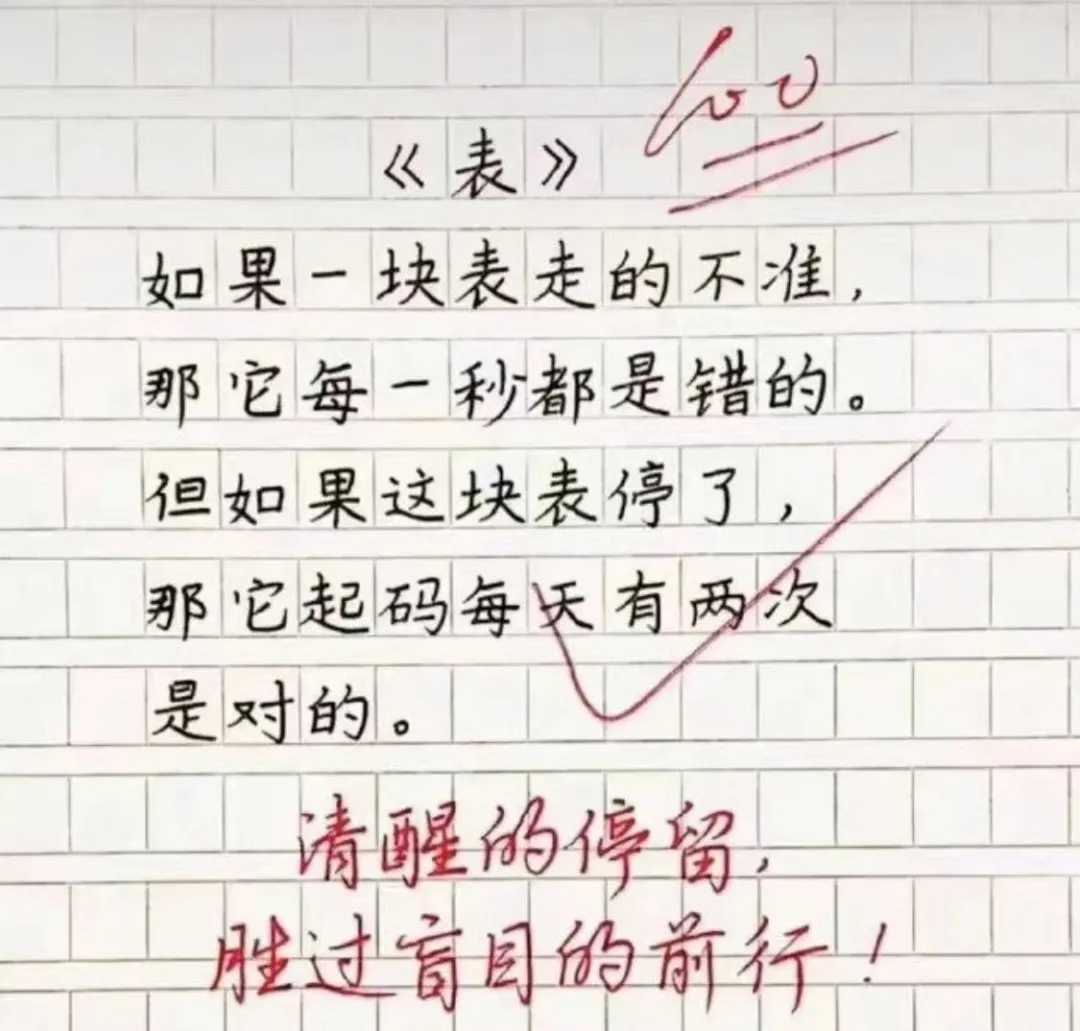 《表》
100
如果一块表走的不准，
那它每一秒都是错的。
但如果这块表停了，
那它起码每天有两次
是对的。
清醒的停留，
胜过盲目的前行！